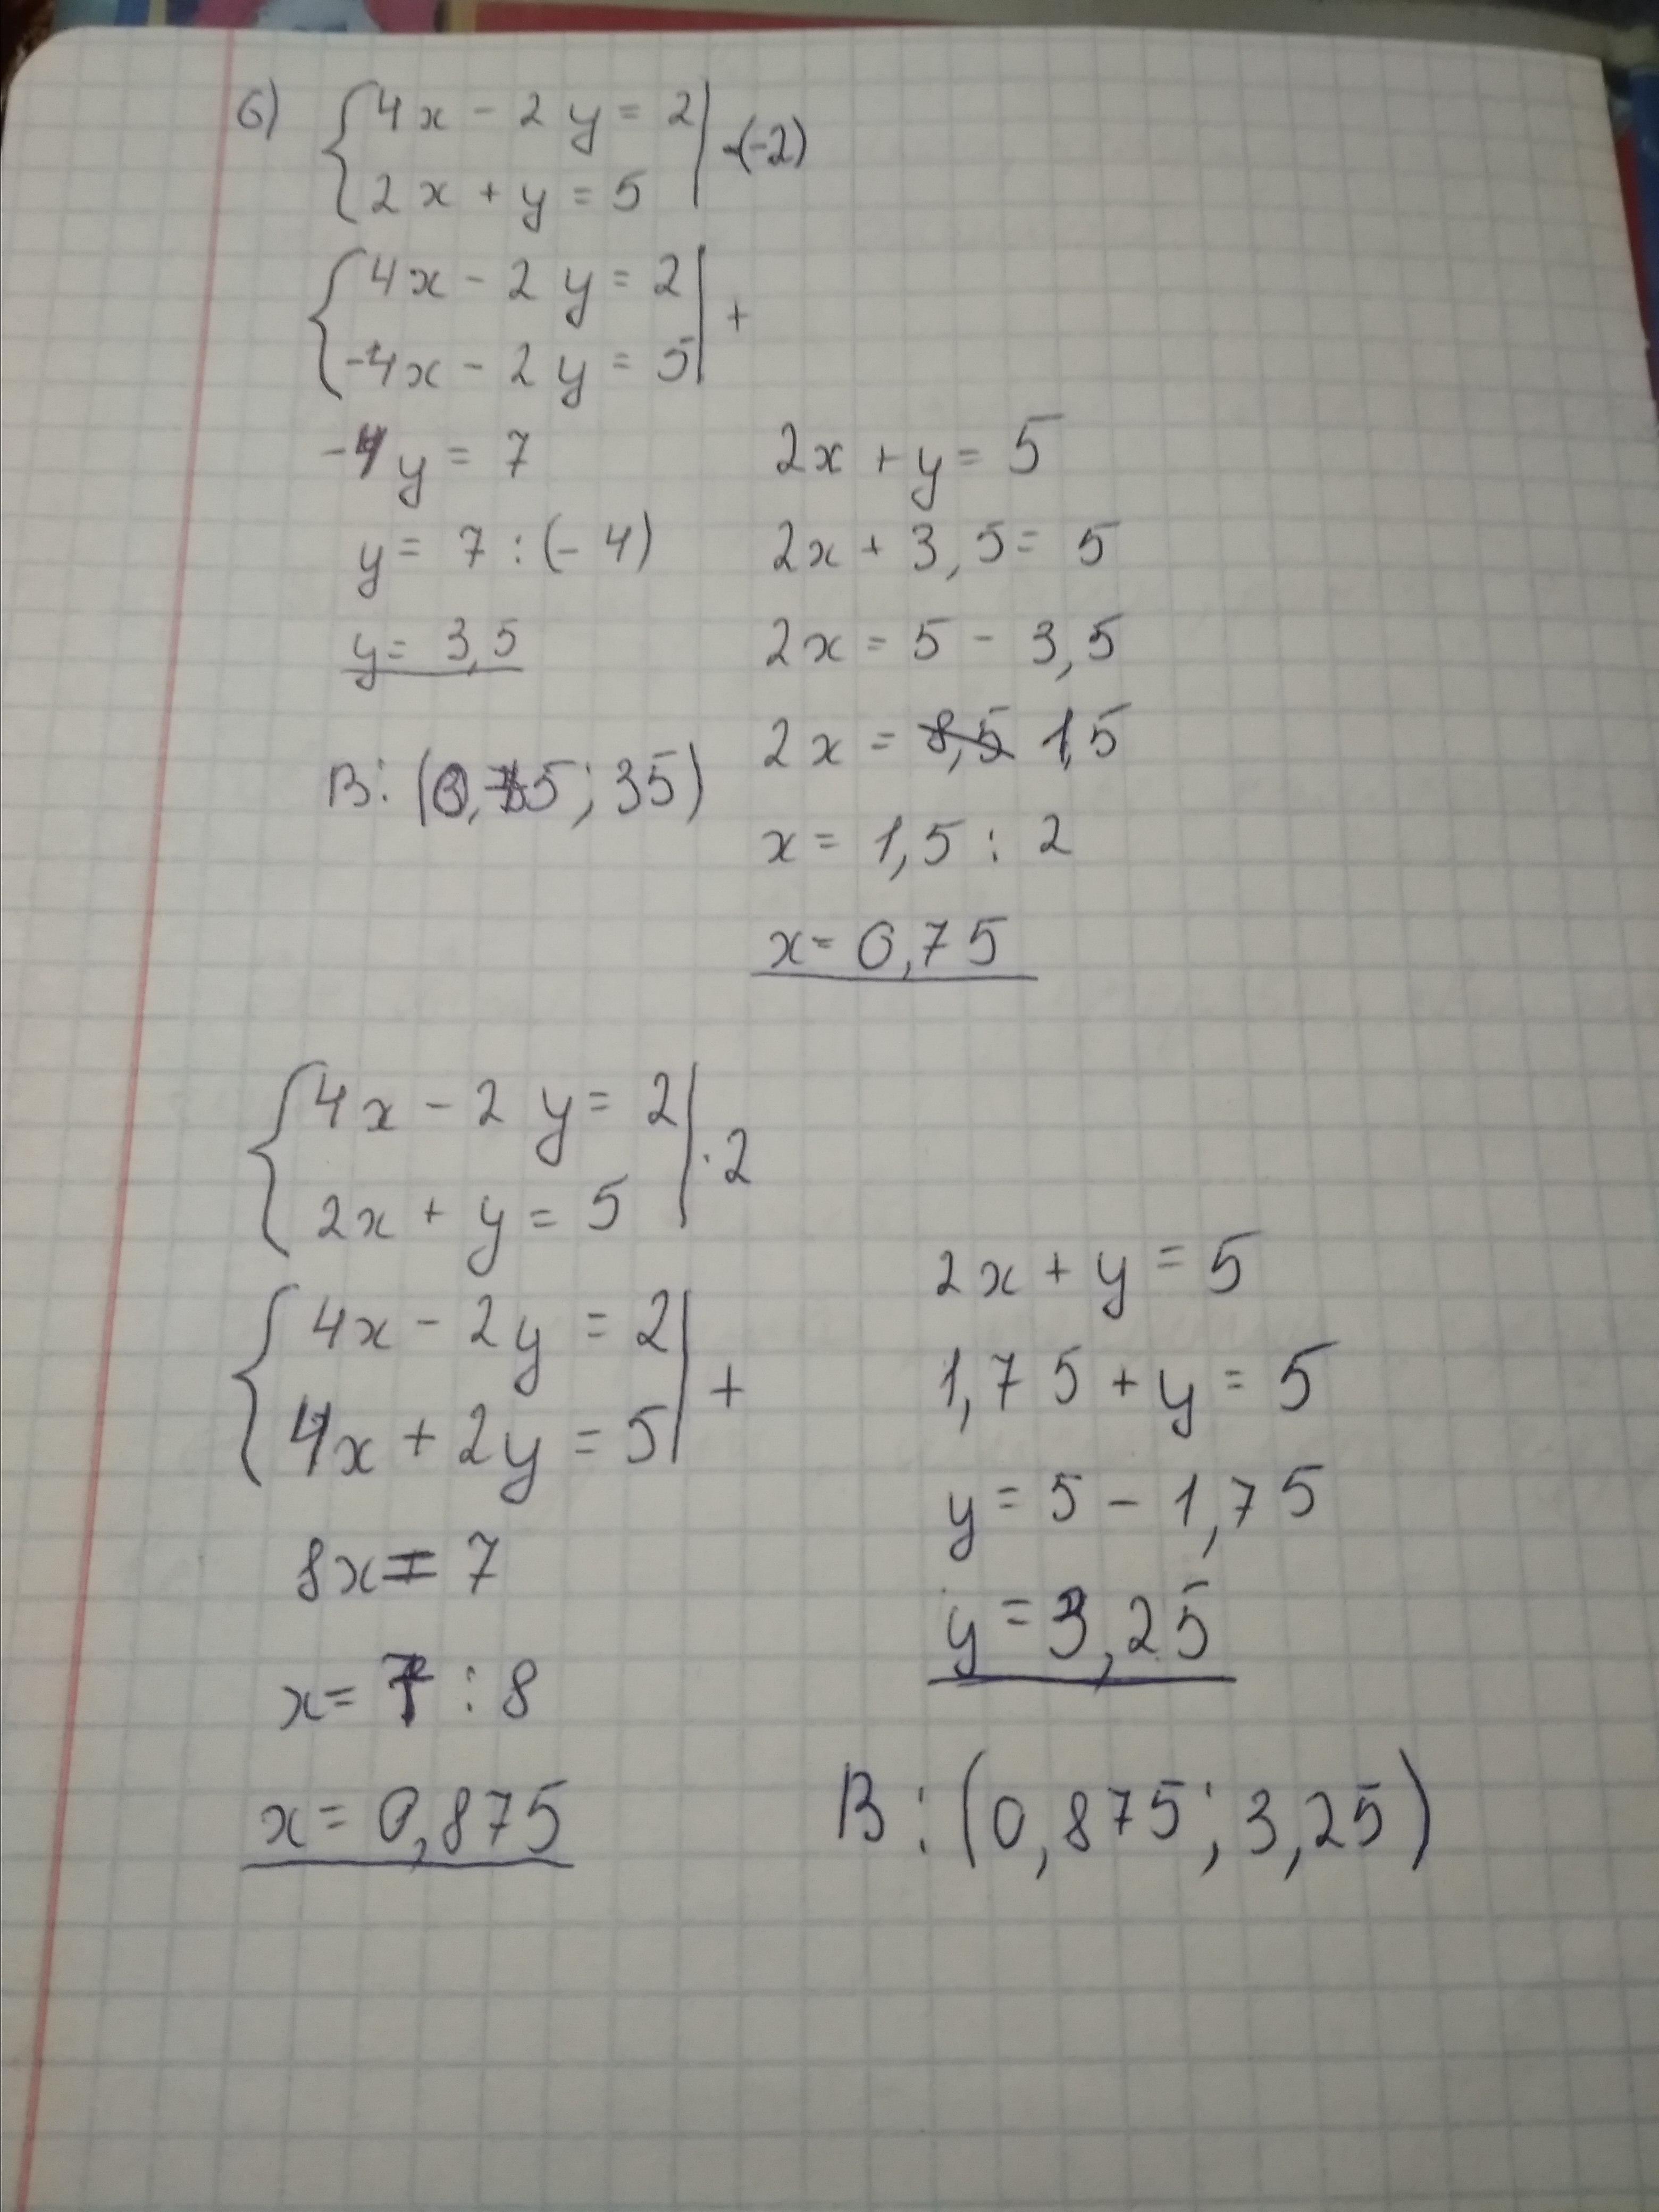 б) 4x - 2y = 2 | ·(-2)
2x + y = 5
4x - 2y = 2 | +
-4x - 2y = 5
-4y = 7
y = 7 : (-4)
y = 3,5
В: (0,75; 35)
2x + y = 5
2x + 3,5 = 5
2x = 5 - 3,5
2x = 8,5 1,5
x = 1,5 : 2
x = 0,75
4x - 2y = 2 | ·2
2x + y = 5
4x - 2y = 2 | +
4x + 2y = 5
8x = 7
x = 7 : 8
x = 0,875
2x + y = 5
1,75 + y = 5
y = 5 - 1,75
y = 3,25
В: (0,875; 3,25)